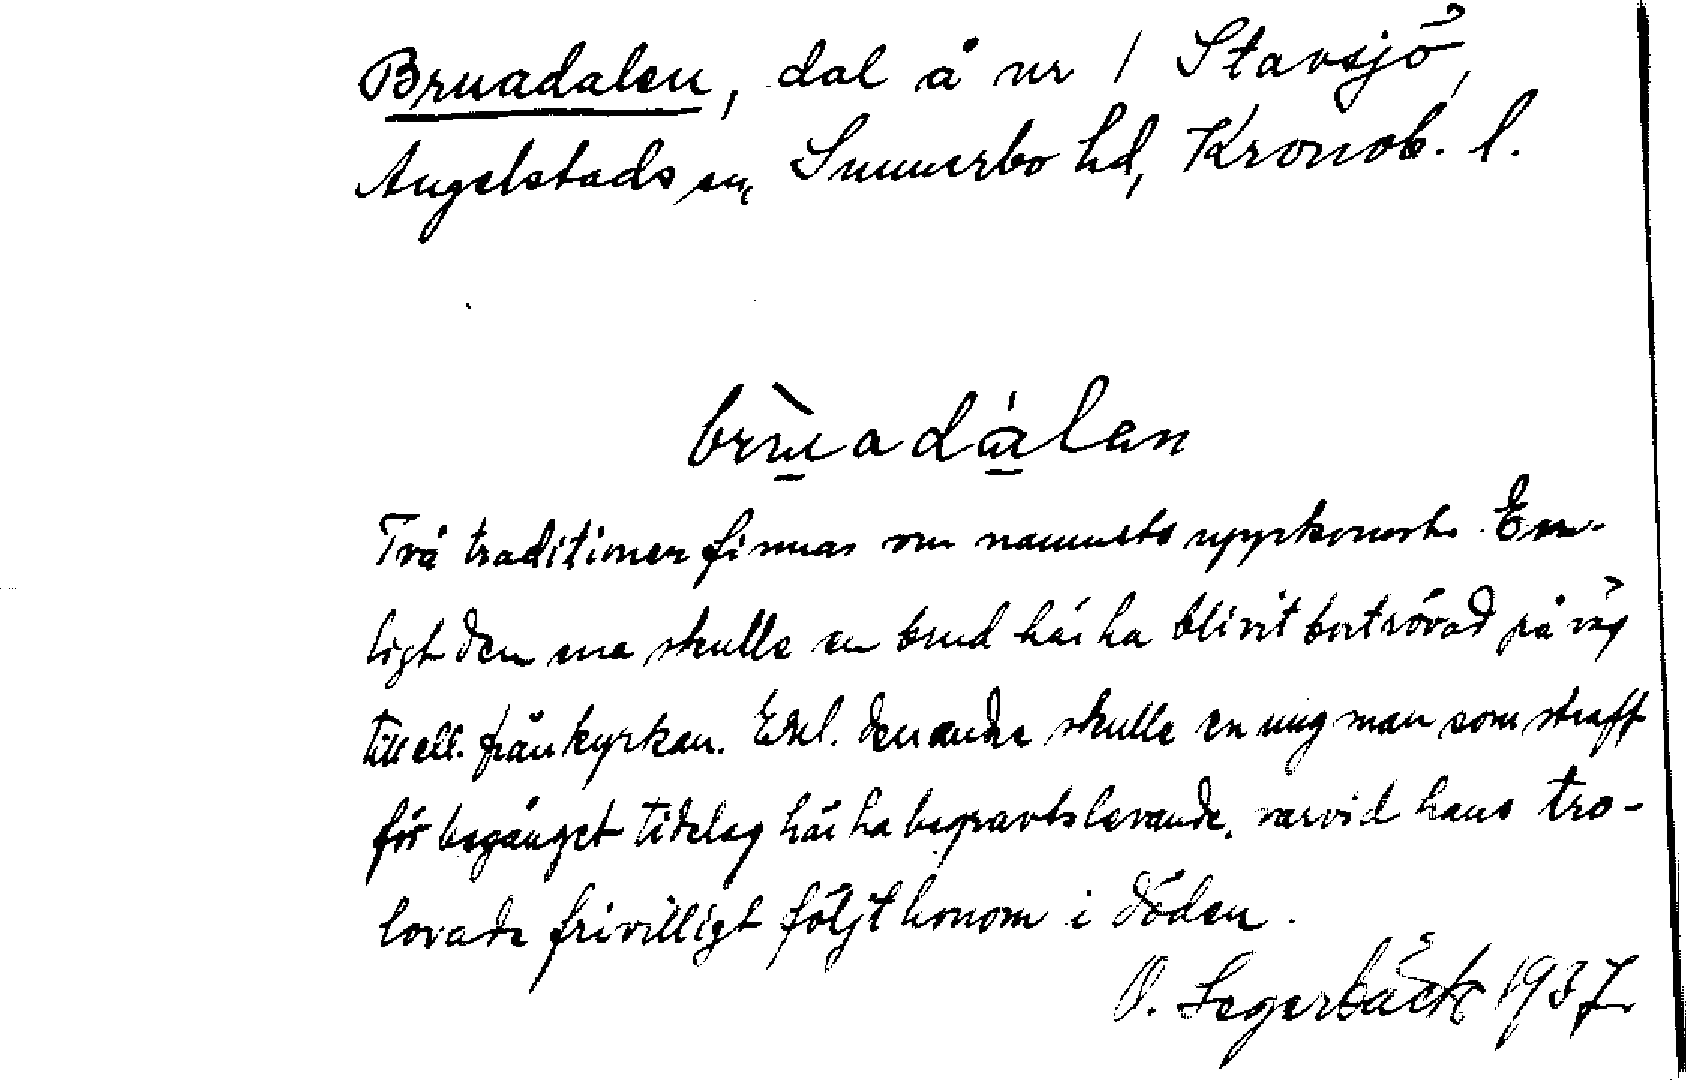 Bruadalen, dal å nr 1 Stavsjö,
Angelstads sn, Sunnerbo hd, Kronob. l.
brùadálen
Två traditioner finnas om namnets uppkomst. En-
ligt den ena skulle en brud här ha blivit bortrövad på väg
till ell. från kyrkan. Enl. den andra skulle en ung man som straff
för begånget tidelag här ha begravts levande, varvid hans tro-
lovade frivilligt följt honom i döden.
O. Segerbäck 1937